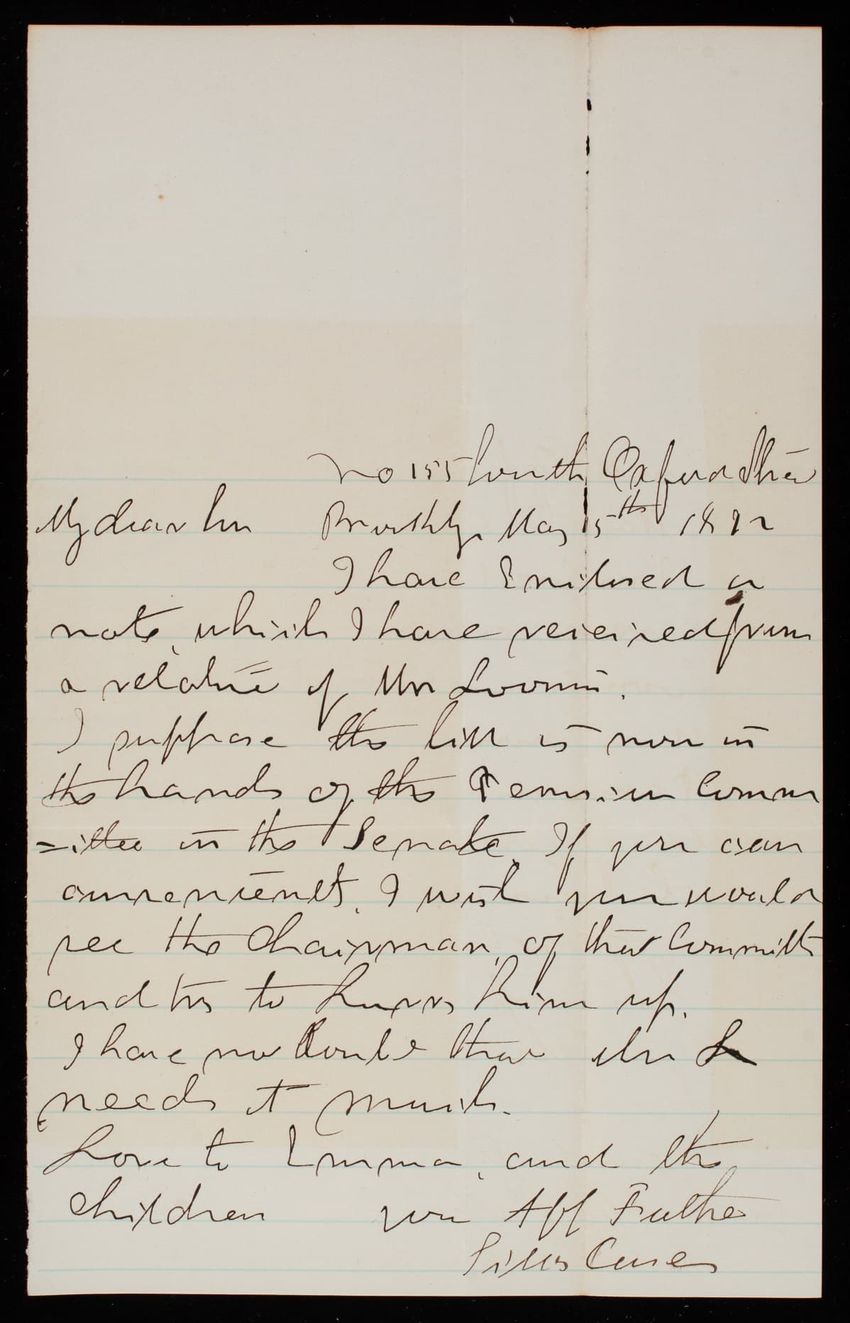 No 155 South Oxford Stree
My dear Son Brooklyn May 15th 1892
I have Enclosed a
note, which I have received from
a relative of Mrs Loomis.
I suppose the bill is now in
the hands of the Pension Comm
=ittee in the Senate, If you can
convenient, I wish you would
see the Chairman, of that Committe
and try to hurry him up.
I have no doubt that Mrs L
needs it much.
Love to Emma, and the
children your Aff Father
Silas Casey